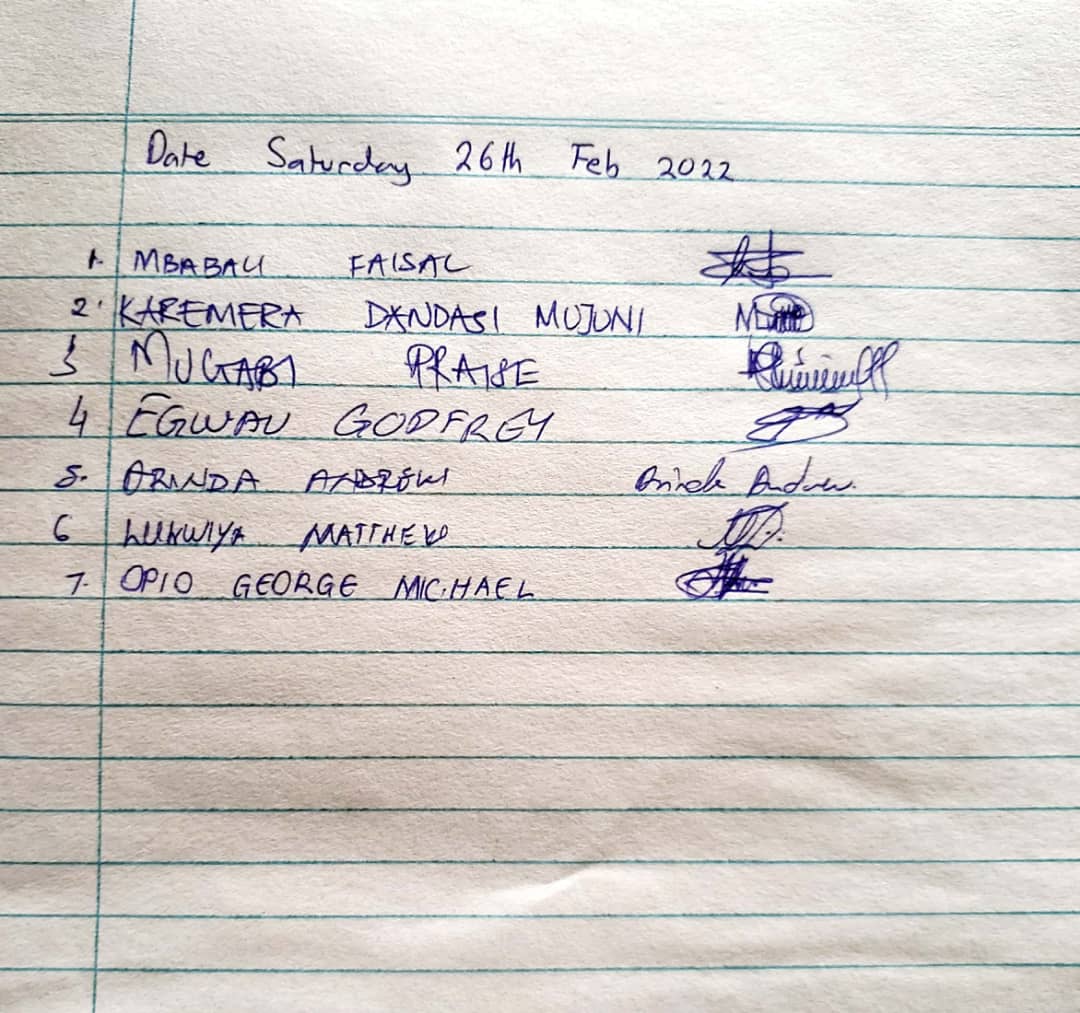 Date Saturday 26th Feb 2022
1. MBABALI FAISAL
2. KAREMERA DANDASI MUJUNI
3 MUGABI PRAISE
4 EGWAU GODFREY
5. ARINDA ANDREW Arinda Andrew.
6 LUKWIYA MATTHEW
7. OPIO GEORGE MICHAEL